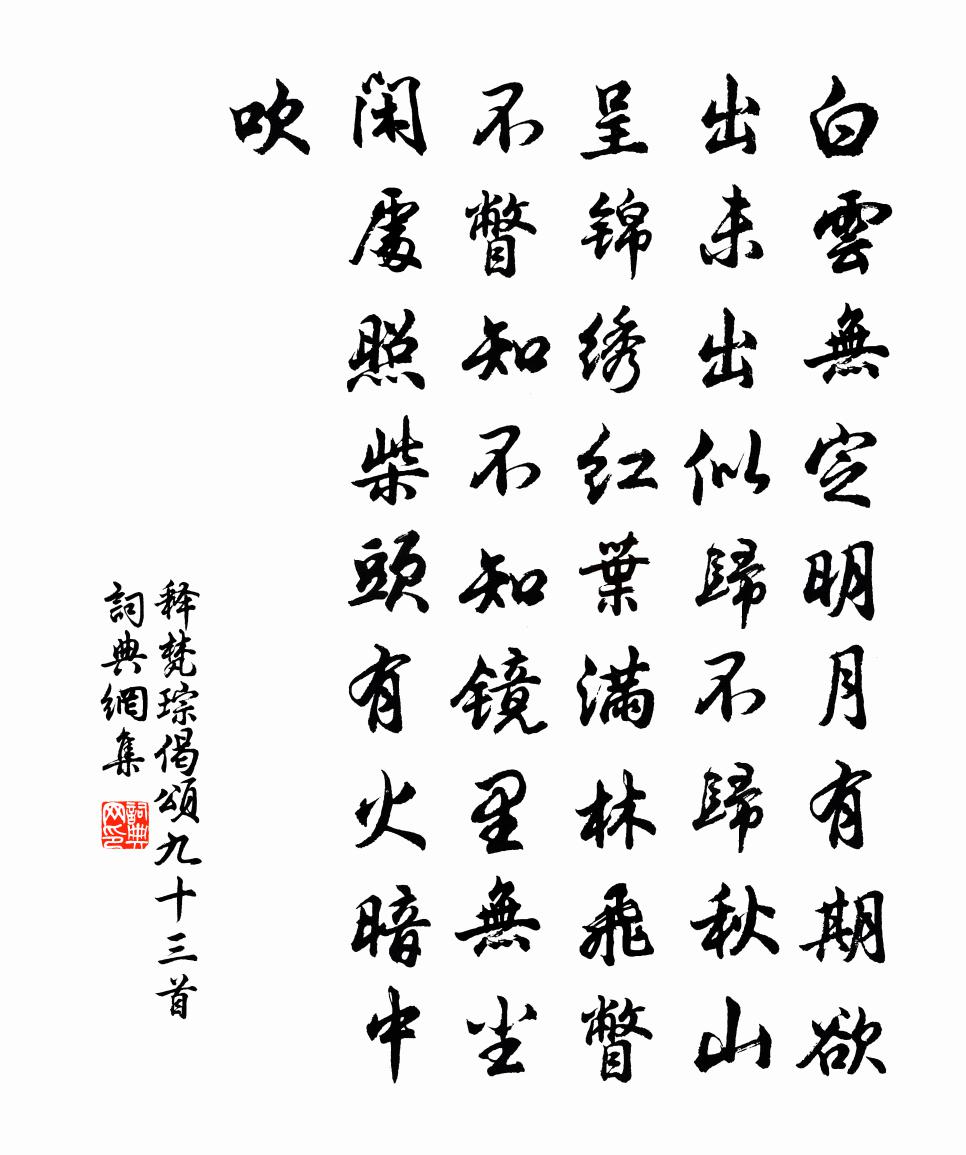 白雲無定明月有期欲
出未出似歸不歸秋山
呈锦绣红葉满林飛瞥
不瞥知不知镜里無尘
闲處照柴頭有火暗中
吹
释梵琮偈頌九十三首
詞典網集
詞典网印